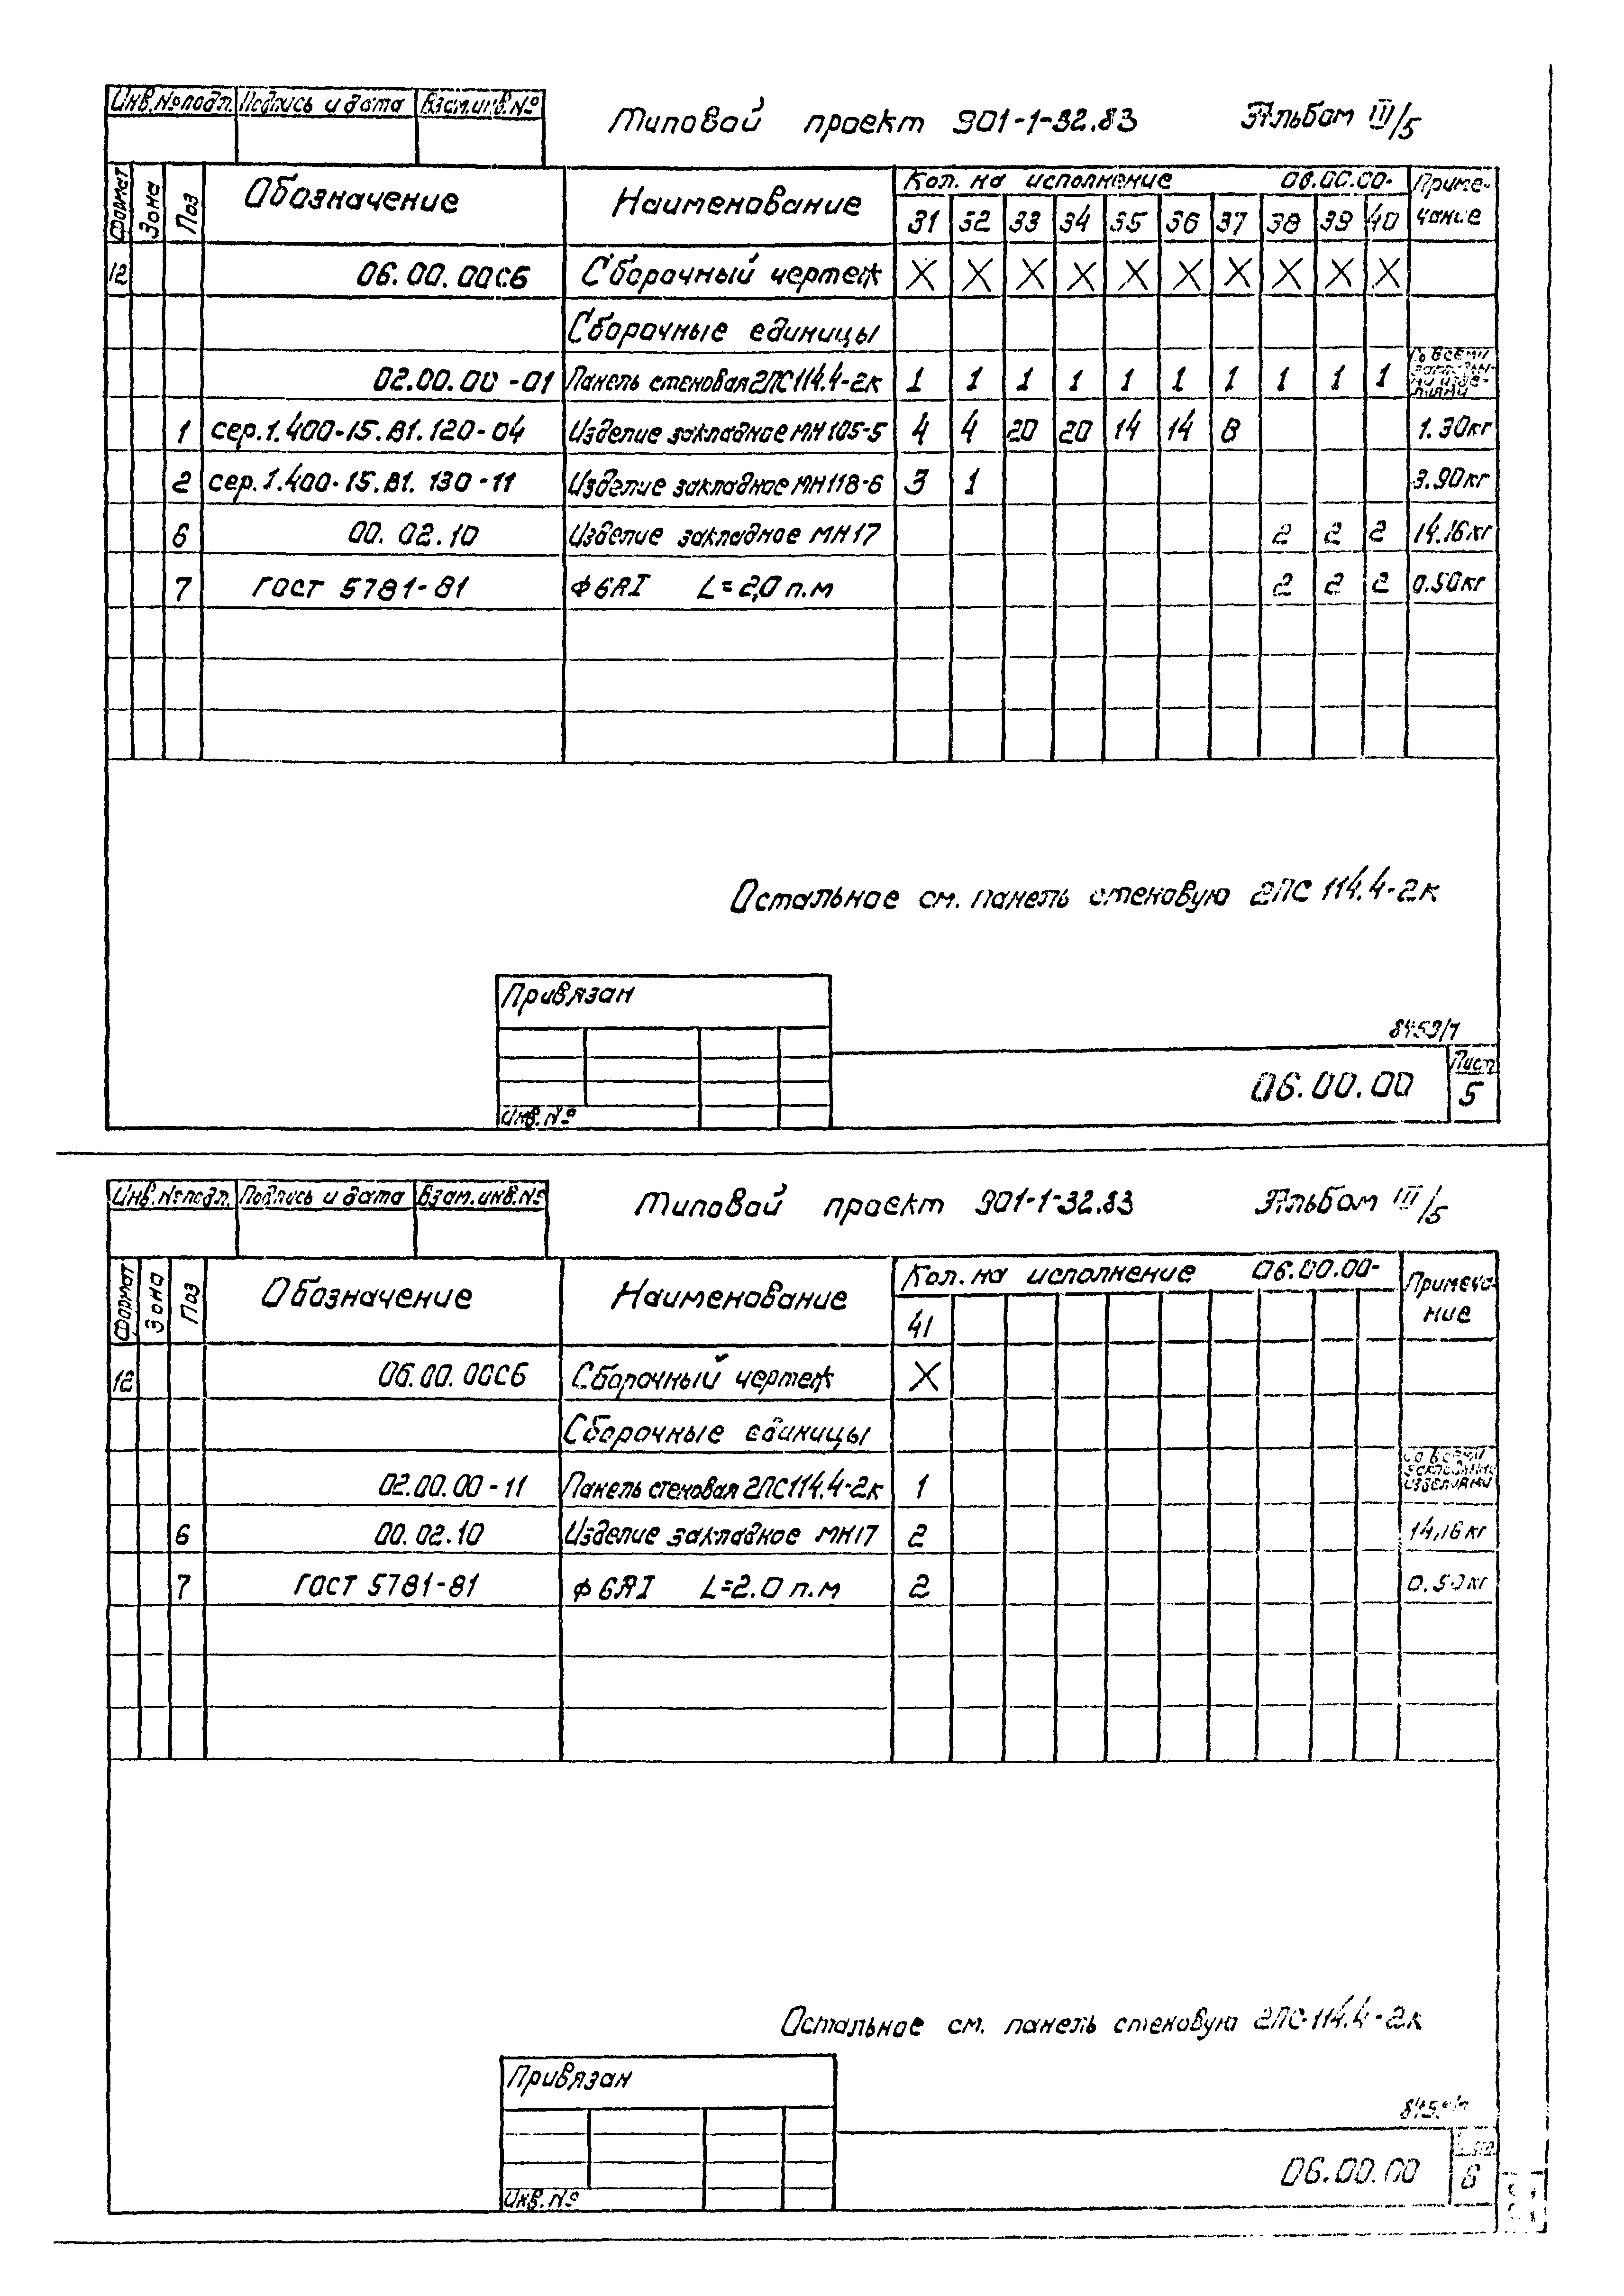 Инв.№подл. Подпись и дата Взам.инв.№
Типовой проект 901-1-32.83 Альбом III/5
Формат Зона Поз Обозначение Наименование Кол. на исполнение 06.00.00- Приме-
31 32 33 34 35 36 37 38 39 40 чание
12 06.00.00СБ Сборочный чертеж X X X X X X X X X X
Сборочные единицы
02.00.00-01 Панель стеновая 2ПС114.4-2к 1 1 1 1 1 1 1 1 1 1
1 сер.1.400-15.В1.120-04 Изделие закладное МН105-5 4 4 20 20 14 14 8 1.30кг
2 сер.1.400-15.В1.130-11 Изделие закладное МН118-6 3 1 3.90кг
6 00.02.10 Изделие закладное МН17 2 2 2 14.16кг
7 ГОСТ 5781-81 ф6АI L=2,0 п.м 2 2 2 0.50кг
Остальное см. панель стеновую 2ПС 114.4-2к
Привязан
Инв.№
06.00.00 Лист
5
Инв.№подл. Подпись и дата Взам.инв.№
Типовой проект 901-1-32.83 Альбом III/5
Формат Зона Поз Обозначение Наименование Кол. на исполнение 06.00.00- Примеча
41 ние
12 06.00.00СБ Сборочный чертеж X
Сборочные единицы
02.00.00-11 Панель стеновая 2ПС114.4-2к 1 со всеми
закладными
изделиями
6 00.02.10 Изделие закладное МН17 2 14,16кг
7 ГОСТ 5781-81 ф6АI L=2.0 п.м 2 0.50кг
Остальное см. панель стеновую 2ПС-114.4-2к
Привязан
Инв.№
06.00.00
6